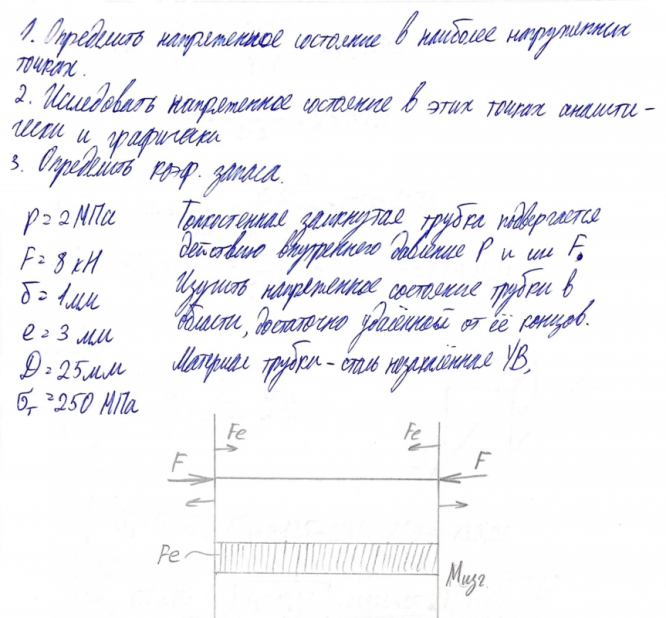 1. Определить напряженное состояние в наиболее нагруженных
точках.
2. Исследовать напряженное состояние в этих точках аналити-
чески и графически
3. Определить коэф. запаса.
p = 2 МПа
F = 8 кН
δ = 1 мм
e = 3 мм
D = 25 мм
σт = 250 МПа
Тонкостенная замкнутая трубка подвергается
действию внутреннего давление P и сил F.
Изучить напряженное состояние трубки в
области, достаточно удалённой от её концов.
Материал трубки – сталь незакалённая УВ,
Fe Fe
F F
Fe
Mизг.